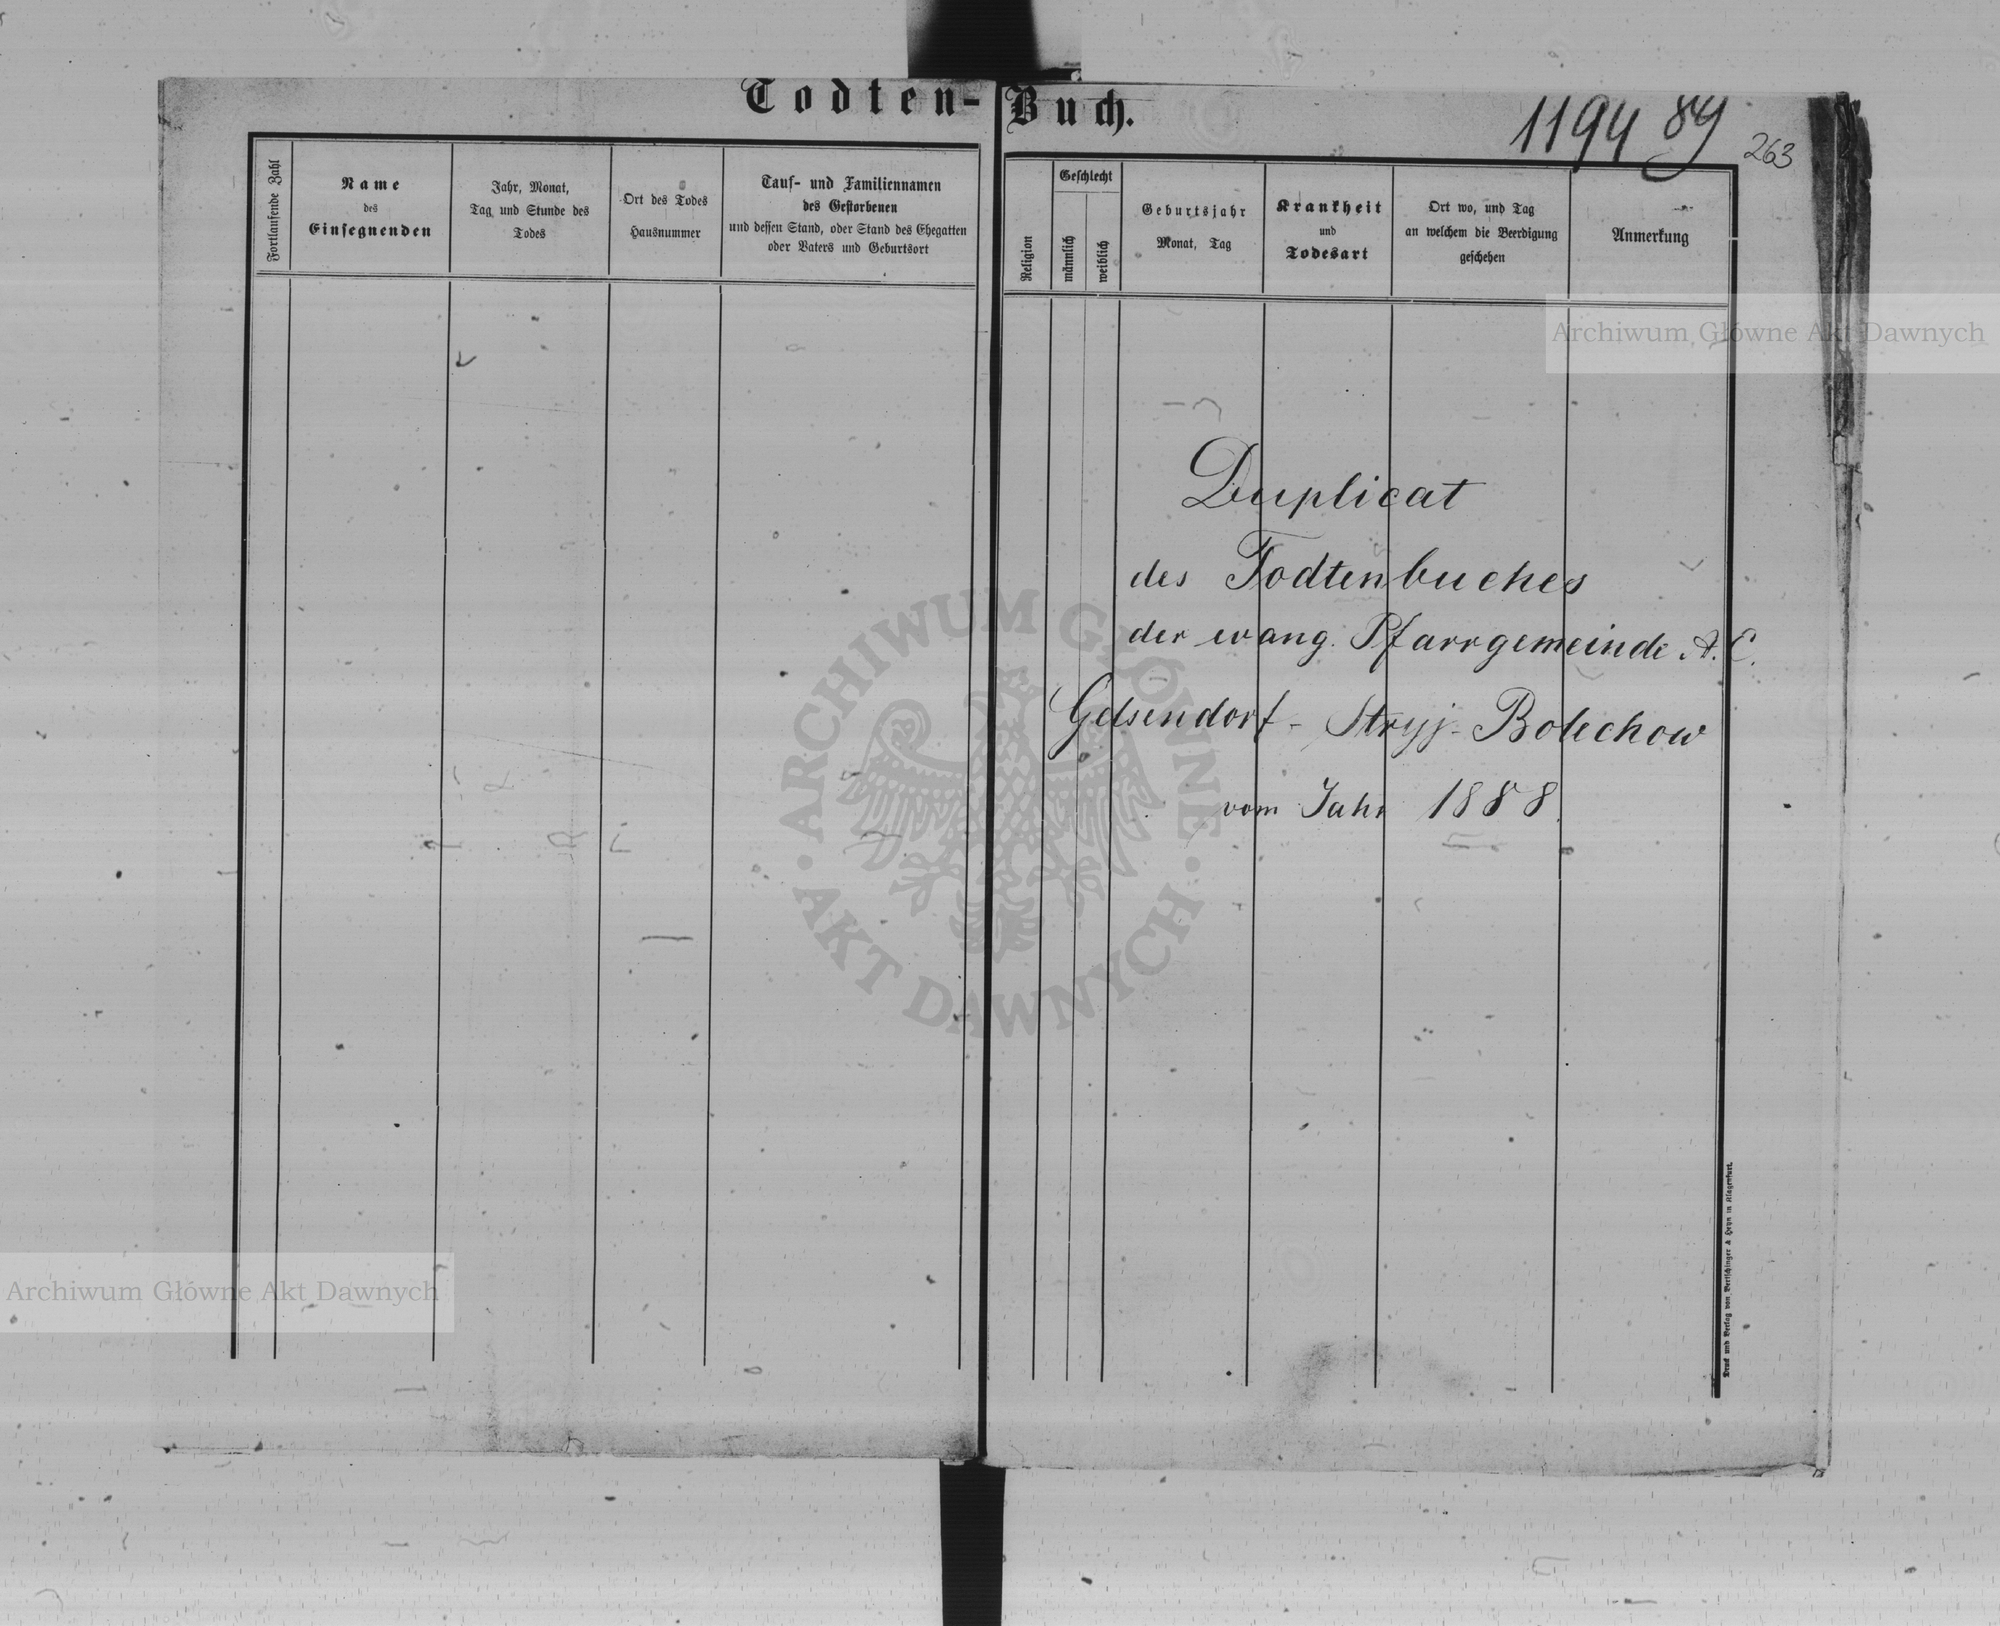 Todten-Buch.
1194 89
263
Fortlaufende Zahl
Name
des
Einsegnenden
Jahr, Monat,
Tag und Stunde des
Todes
Ort des Todes
Hausnummer
Tauf- und Familiennamen
des Gestorbenen
und dessen Stand, oder Stand des Ehegatten
oder Vaters und Geburtsort
Religion
Geschlecht
männlich
weiblich
Geburtsjahr
Monat, Tag
Krankheit
und
Todesart
Ort wo, und Tag
an welchem die Beerdigung
geschehen
Anmerkung
Duplicat
des Todtenbuches
der evang. Pfarrgemeinde A. C.
Gelsendorf - Stryj - Bolechow
vom Jahr 1888.
Druck und Verlag von Bertschinger & Heyn in Klagenfurt.
Archiwum Główne Akt Dawnych
ARCHIWUM GŁÓWNE
• AKT DAWNYCH •
Archiwum Główne Akt Dawnych